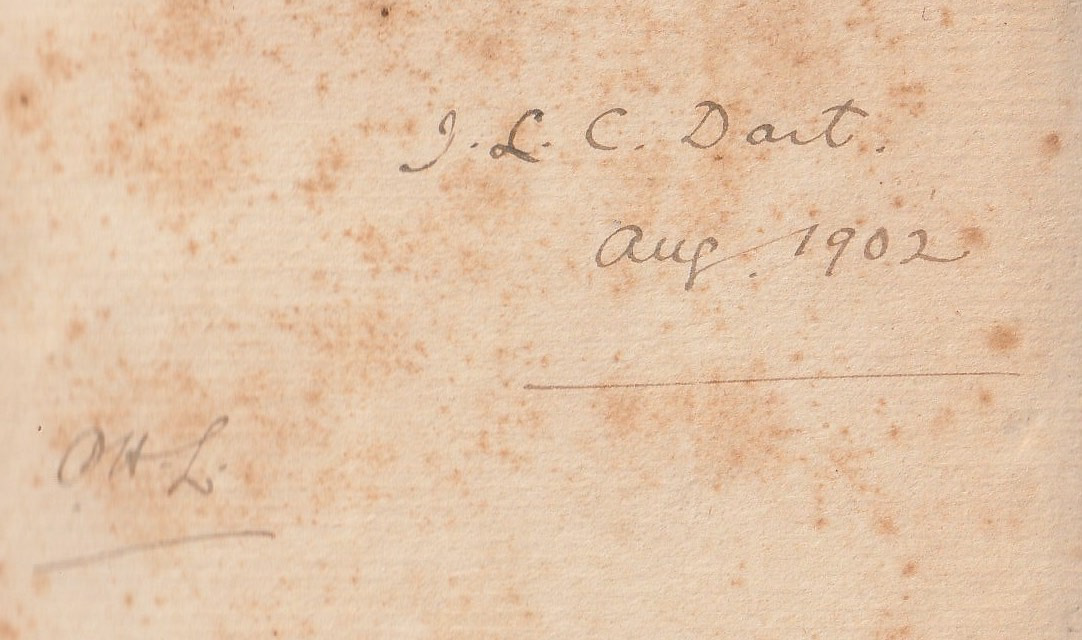 J. L. C. Dart.
Aug. 1902
P.H.L.